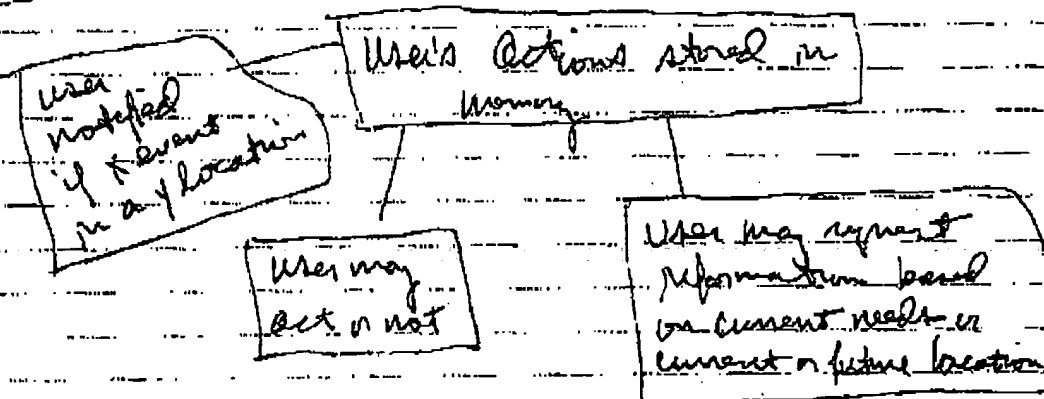 User's Actions stored in
memory
User
notified
if X event
in a Y location
User may
act or not
User may request
information based
on current needs or
current or future location